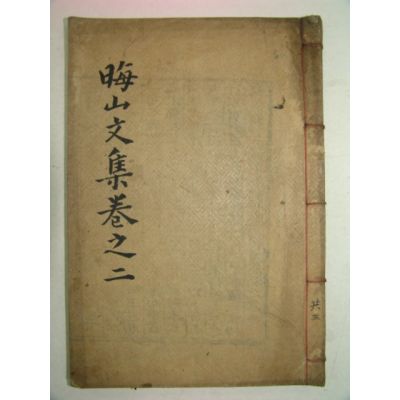 晦山文集卷之二
共三